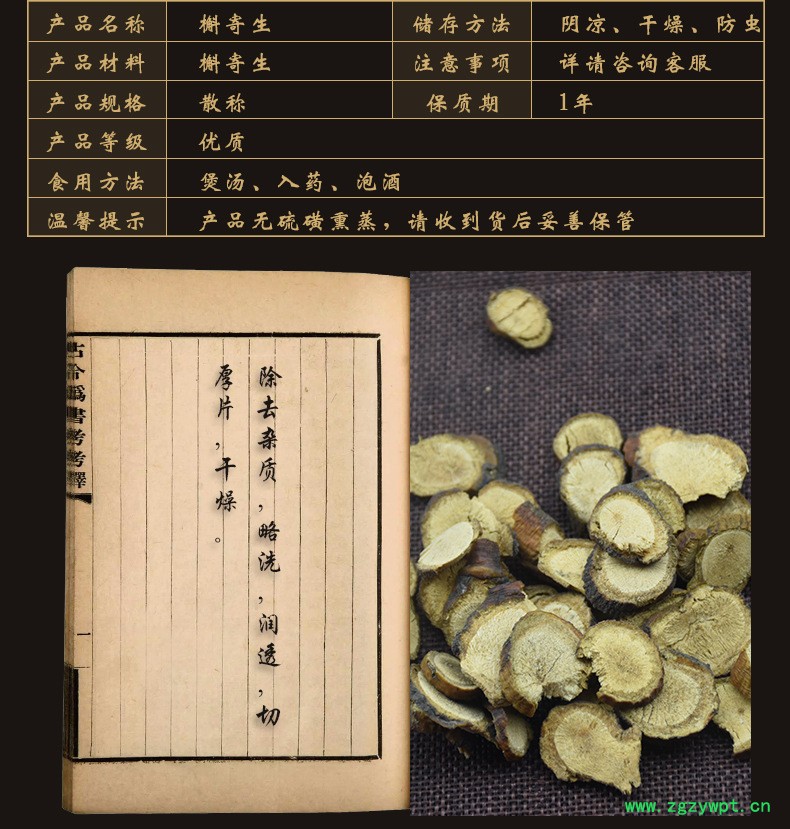 产品名称 槲寄生 储存方法 阴凉、干燥、防虫
产品材料 槲寄生 注意事项 详请咨询客服
产品规格 散称 保质期 1年
产品等级 优质
食用方法 煲汤、入药、泡酒
温馨提示 产品无硫磺熏蒸，请收到货后妥善保管
除去杂质，略洗，润透，切
厚片，干燥。
古今伪書考考釋
一
www.zgzywpt.cn